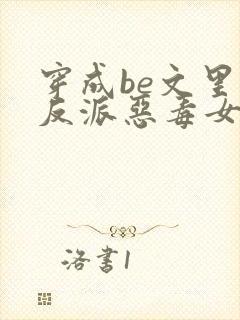 穿成be文里
反派惡毒女
洛書1